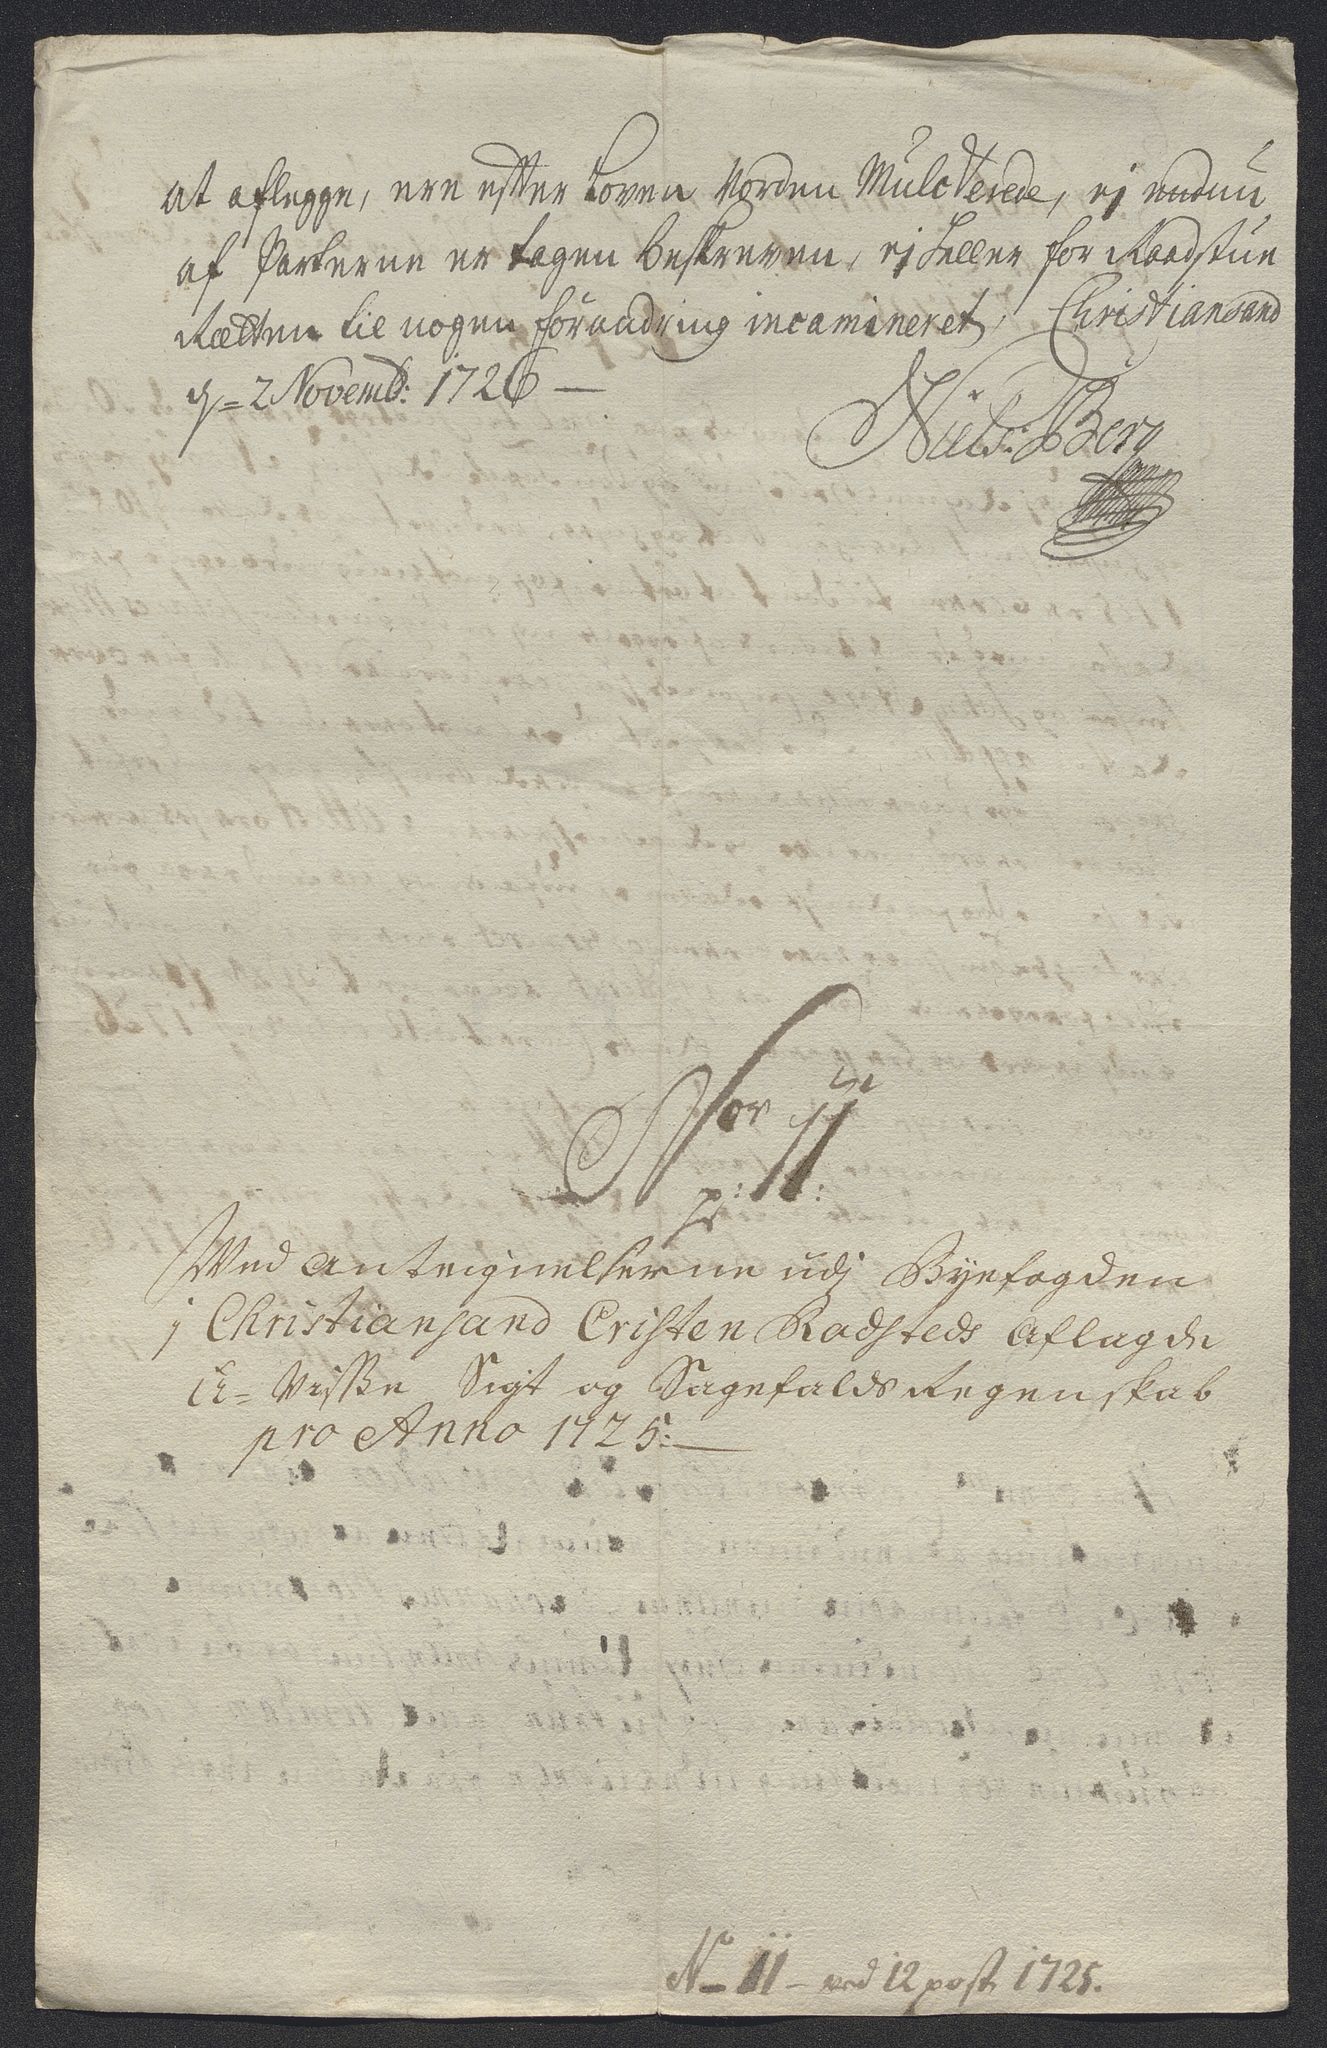 at aflegge, ere efter Loven vorden Mulcterede, ej endnu
af Parterne er tagen beskreven, ej heller for Raadstue
Rætten til nogen forandring incamineret, Christiansand
d = 2 Novemb: 1726 —
Niels: Berg
Nor 11
p:
Ved Anteignelserne udj Byefogden
j Christiansand Cristen Rodsteds Aflagde
U= Visse Sigt og Sagefalds Regenskab
pro Anno 1725:—
No 11 – ved 12 post 1725.